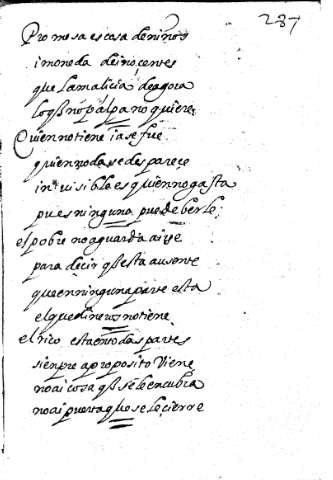 287
Promesa es cosa de niños
i moneda de inocentes
que la malicia de agora
lo q̃ no palpa no quiere
Quien no tiene ia se fue
quien no da se despareçe
inuisible es quien no gasta
pues ninguno puede berle
el pobre no aguarda a irse
para deçir q̃ esta ausente
que en ninguna parte esta
el que dineros no tiene
el rico esta en todas partes
siempre a proposito viene
no ai cosa q̃ se le encubra
no ai puerta que se le çierre